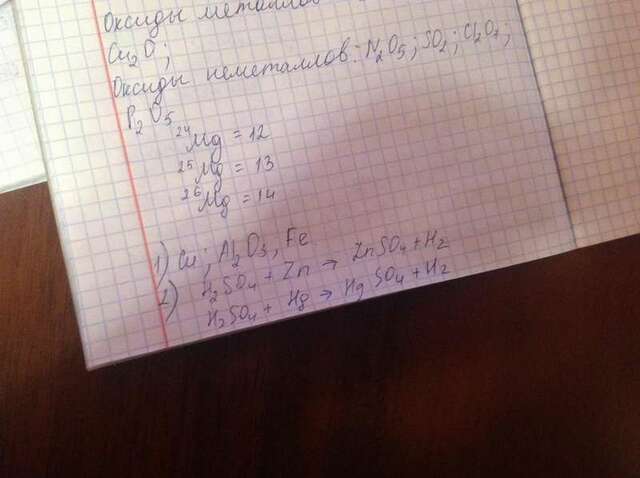 Оксиды металлов
Cu₂O;
Оксиды неметаллов: N₂O₅; SO₂; Cl₂O₇;
P₂O₅
²⁴Mg = 12
²⁵Mg = 13
²⁶Mg = 14
1) Cu; Al₂O₃, Fe
2) H₂SO₄ + Zn → ZnSO₄ + H₂
H₂SO₄ + Hg → HgSO₄ + H₂